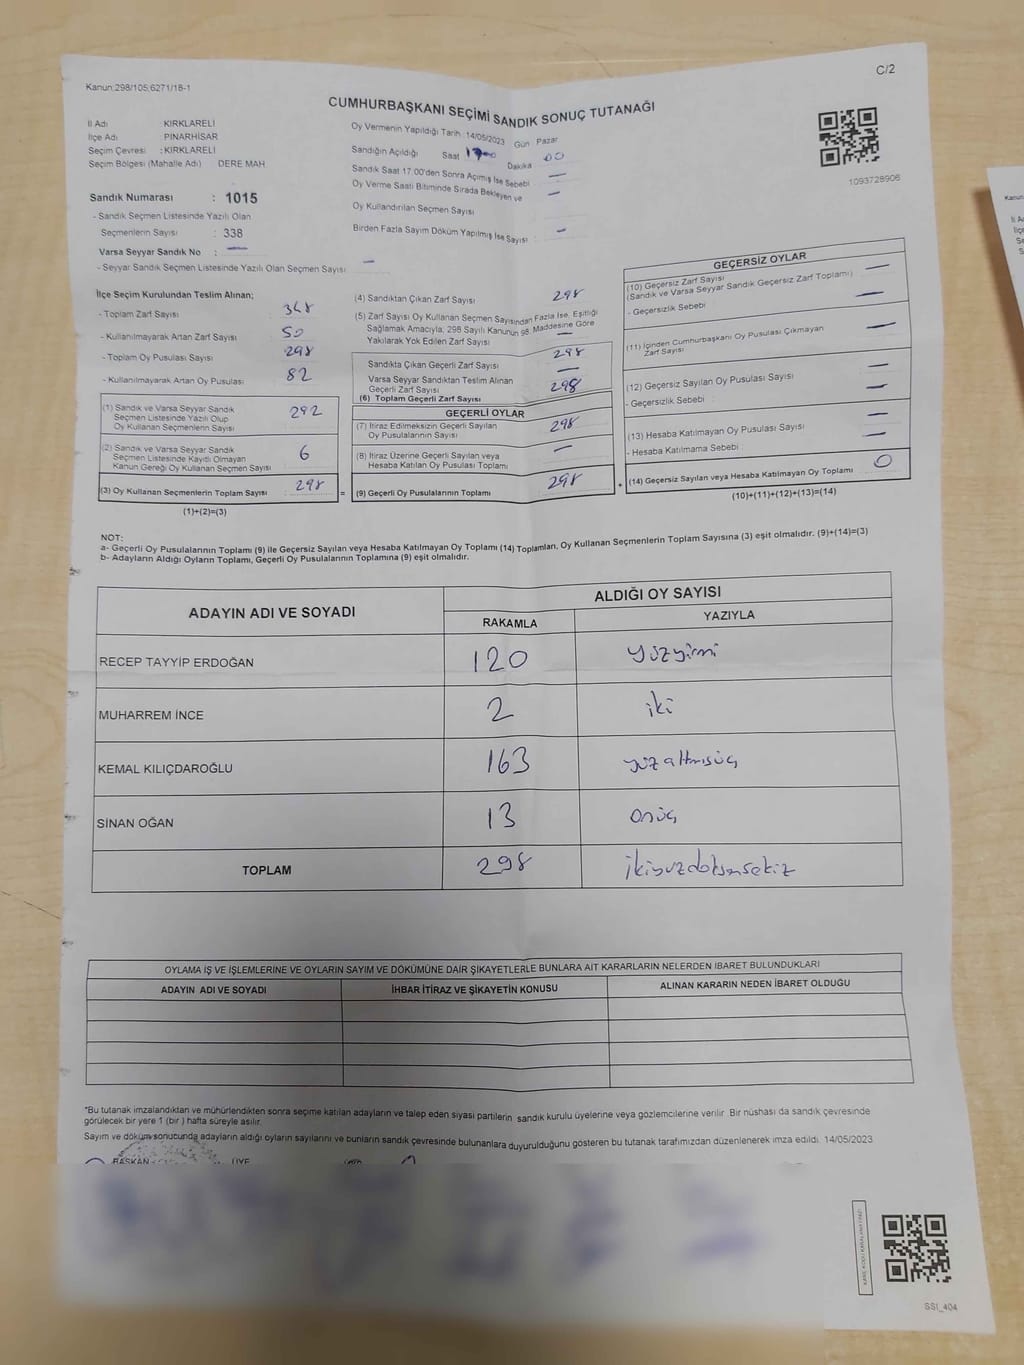 Kanun:298/105;6271/18-1
C/2
CUMHURBAŞKANI SEÇİMİ SANDIK SONUÇ TUTANAĞI
İl Adı KIRKLARELİ
İlçe Adı PINARHİSAR
Seçim Çevresi : KIRKLARELİ
Seçim Bölgesi (Mahalle Adı) DERE MAH
Sandık Numarası : 1015
- Sandık Seçmen Listesinde Yazılı Olan
Seçmenlerin Sayısı : 338
Varsa Seyyar Sandık No : —
- Seyyar Sandık Seçmen Listesinde Yazılı Olan Seçmen Sayısı —
Oy Vermenin Yapıldığı Tarih 14/05/2023 Gün Pazar
Sandığın Açıldığı Saat Dakika 00
Sandık Saat 17.00'den Sonra Açımış İse Sebebi —
Oy Verme Saati Bitiminde Sırada Bekleyen ve —
Oy Kullandırılan Seçmen Sayısı
Birden Fazla Sayım Döküm Yapılmış İse Sayısı : —
1093728906
İlçe Seçim Kurulundan Teslim Alınan;
- Toplam Zarf Sayısı 348
- Kullanılmayarak Artan Zarf Sayısı 50
- Toplam Oy Pusulası Sayısı 298
- Kullanılmayarak Artan Oy Pusulası 82
(1) Sandık ve Varsa Seyyar Sandık
Seçmen Listesinde Yazılı Olup
Oy Kullanan Seçmenlerin Sayısı 292
(2) Sandık ve Varsa Seyyar Sandık
Seçmen Listesinde Kayıtlı Olmayan
Kanun Gereği Oy Kullanan Seçmen Sayısı 6
(3) Oy Kullanan Seçmenlerin Toplam Sayısı 298
(1)+(2)=(3)
=
(4) Sandıktan Çıkan Zarf Sayısı 298
(5) Zarf Sayısı Oy Kullanan Seçmen Sayısından Fazla İse, Eşitliği
Sağlamak Amacıyla; 298 Sayılı Kanunun 98. Maddesine Göre
Yakılarak Yok Edilen Zarf Sayısı —
Sandıkta Çıkan Geçerli Zarf Sayısı 298
Varsa Seyyar Sandıktan Teslim Alınan
Geçerli Zarf Sayısı —
(6) Toplam Geçerli Zarf Sayısı 298
GEÇERLİ OYLAR
(7) İtiraz Edilmeksizin Geçerli Sayılan
Oy Pusulalarının Sayısı 298
(8) İtiraz Üzerine Geçerli Sayılan veya
Hesaba Katılan Oy Pusulası Toplamı —
(9) Geçerli Oy Pusulalarının Toplamı 298
+
GEÇERSİZ OYLAR
(10) Geçersiz Zarf Sayısı —
(Sandık ve Varsa Seyyar Sandık Geçersiz Zarf Toplamı)
- Geçersizlik Sebebi —
(11) İçinden Cumhurbaşkanı Oy Pusulası Çıkmayan
Zarf Sayısı —
(12) Geçersiz Sayılan Oy Pusulası Sayısı —
- Geçersizlik Sebebi : —
(13) Hesaba Katılmayan Oy Pusulası Sayısı —
- Hesaba Katılmama Sebebi : —
(14) Geçersiz Sayılan veya Hesaba Katılmayan Oy Toplamı 0
(10)+(11)+(12)+(13)=(14)
NOT:
a- Geçerli Oy Pusulalarının Toplamı (9) ile Geçersiz Sayılan veya Hesaba Katılmayan Oy Toplamı (14) Toplamları, Oy Kullanan Seçmenlerin Toplam Sayısına (3) eşit olmalıdır. (9)+(14)=(3)
b- Adayların Aldığı Oyların Toplamı, Geçerli Oy Pusulalarının Toplamına (9) eşit olmalıdır.
ADAYIN ADI VE SOYADI ALDIĞI OY SAYISI
RAKAMLA YAZIYLA
RECEP TAYYİP ERDOĞAN 120 yüzyirmi
MUHARREM İNCE 2 iki
KEMAL KILIÇDAROĞLU 163 yüzaltmışüç
SİNAN OĞAN 13 onüç
TOPLAM 298 ikiyüzdoksansekiz
OYLAMA İŞ VE İŞLEMLERİNE VE OYLARIN SAYIM VE DÖKÜMÜNE DAİR ŞİKAYETLERLE BUNLARA AİT KARARLARIN NELERDEN İBARET BULUNDUKLARI
ADAYIN ADI VE SOYADI İHBAR İTİRAZ VE ŞİKAYETİN KONUSU ALINAN KARARIN NEDEN İBARET OLDUĞU
*Bu tutanak imzalandıktan ve mühürlendikten sonra seçime katılan adayların ve talep eden siyasi partilerin sandık kurulu üyelerine veya gözlemcilerine verilir. Bir nüshası da sandık çevresinde
görülecek bir yere 1 (bir) hafta süreyle asılır.
Sayım ve döküm sonucunda adayların aldığı oyların sayılarını ve bunların sandık çevresinde bulunanlara duyurulduğunu gösteren bu tutanak tarafımızdan düzenlenerek imza edildi. 14/05/2023
BAŞKAN ÜYE
SSI_404